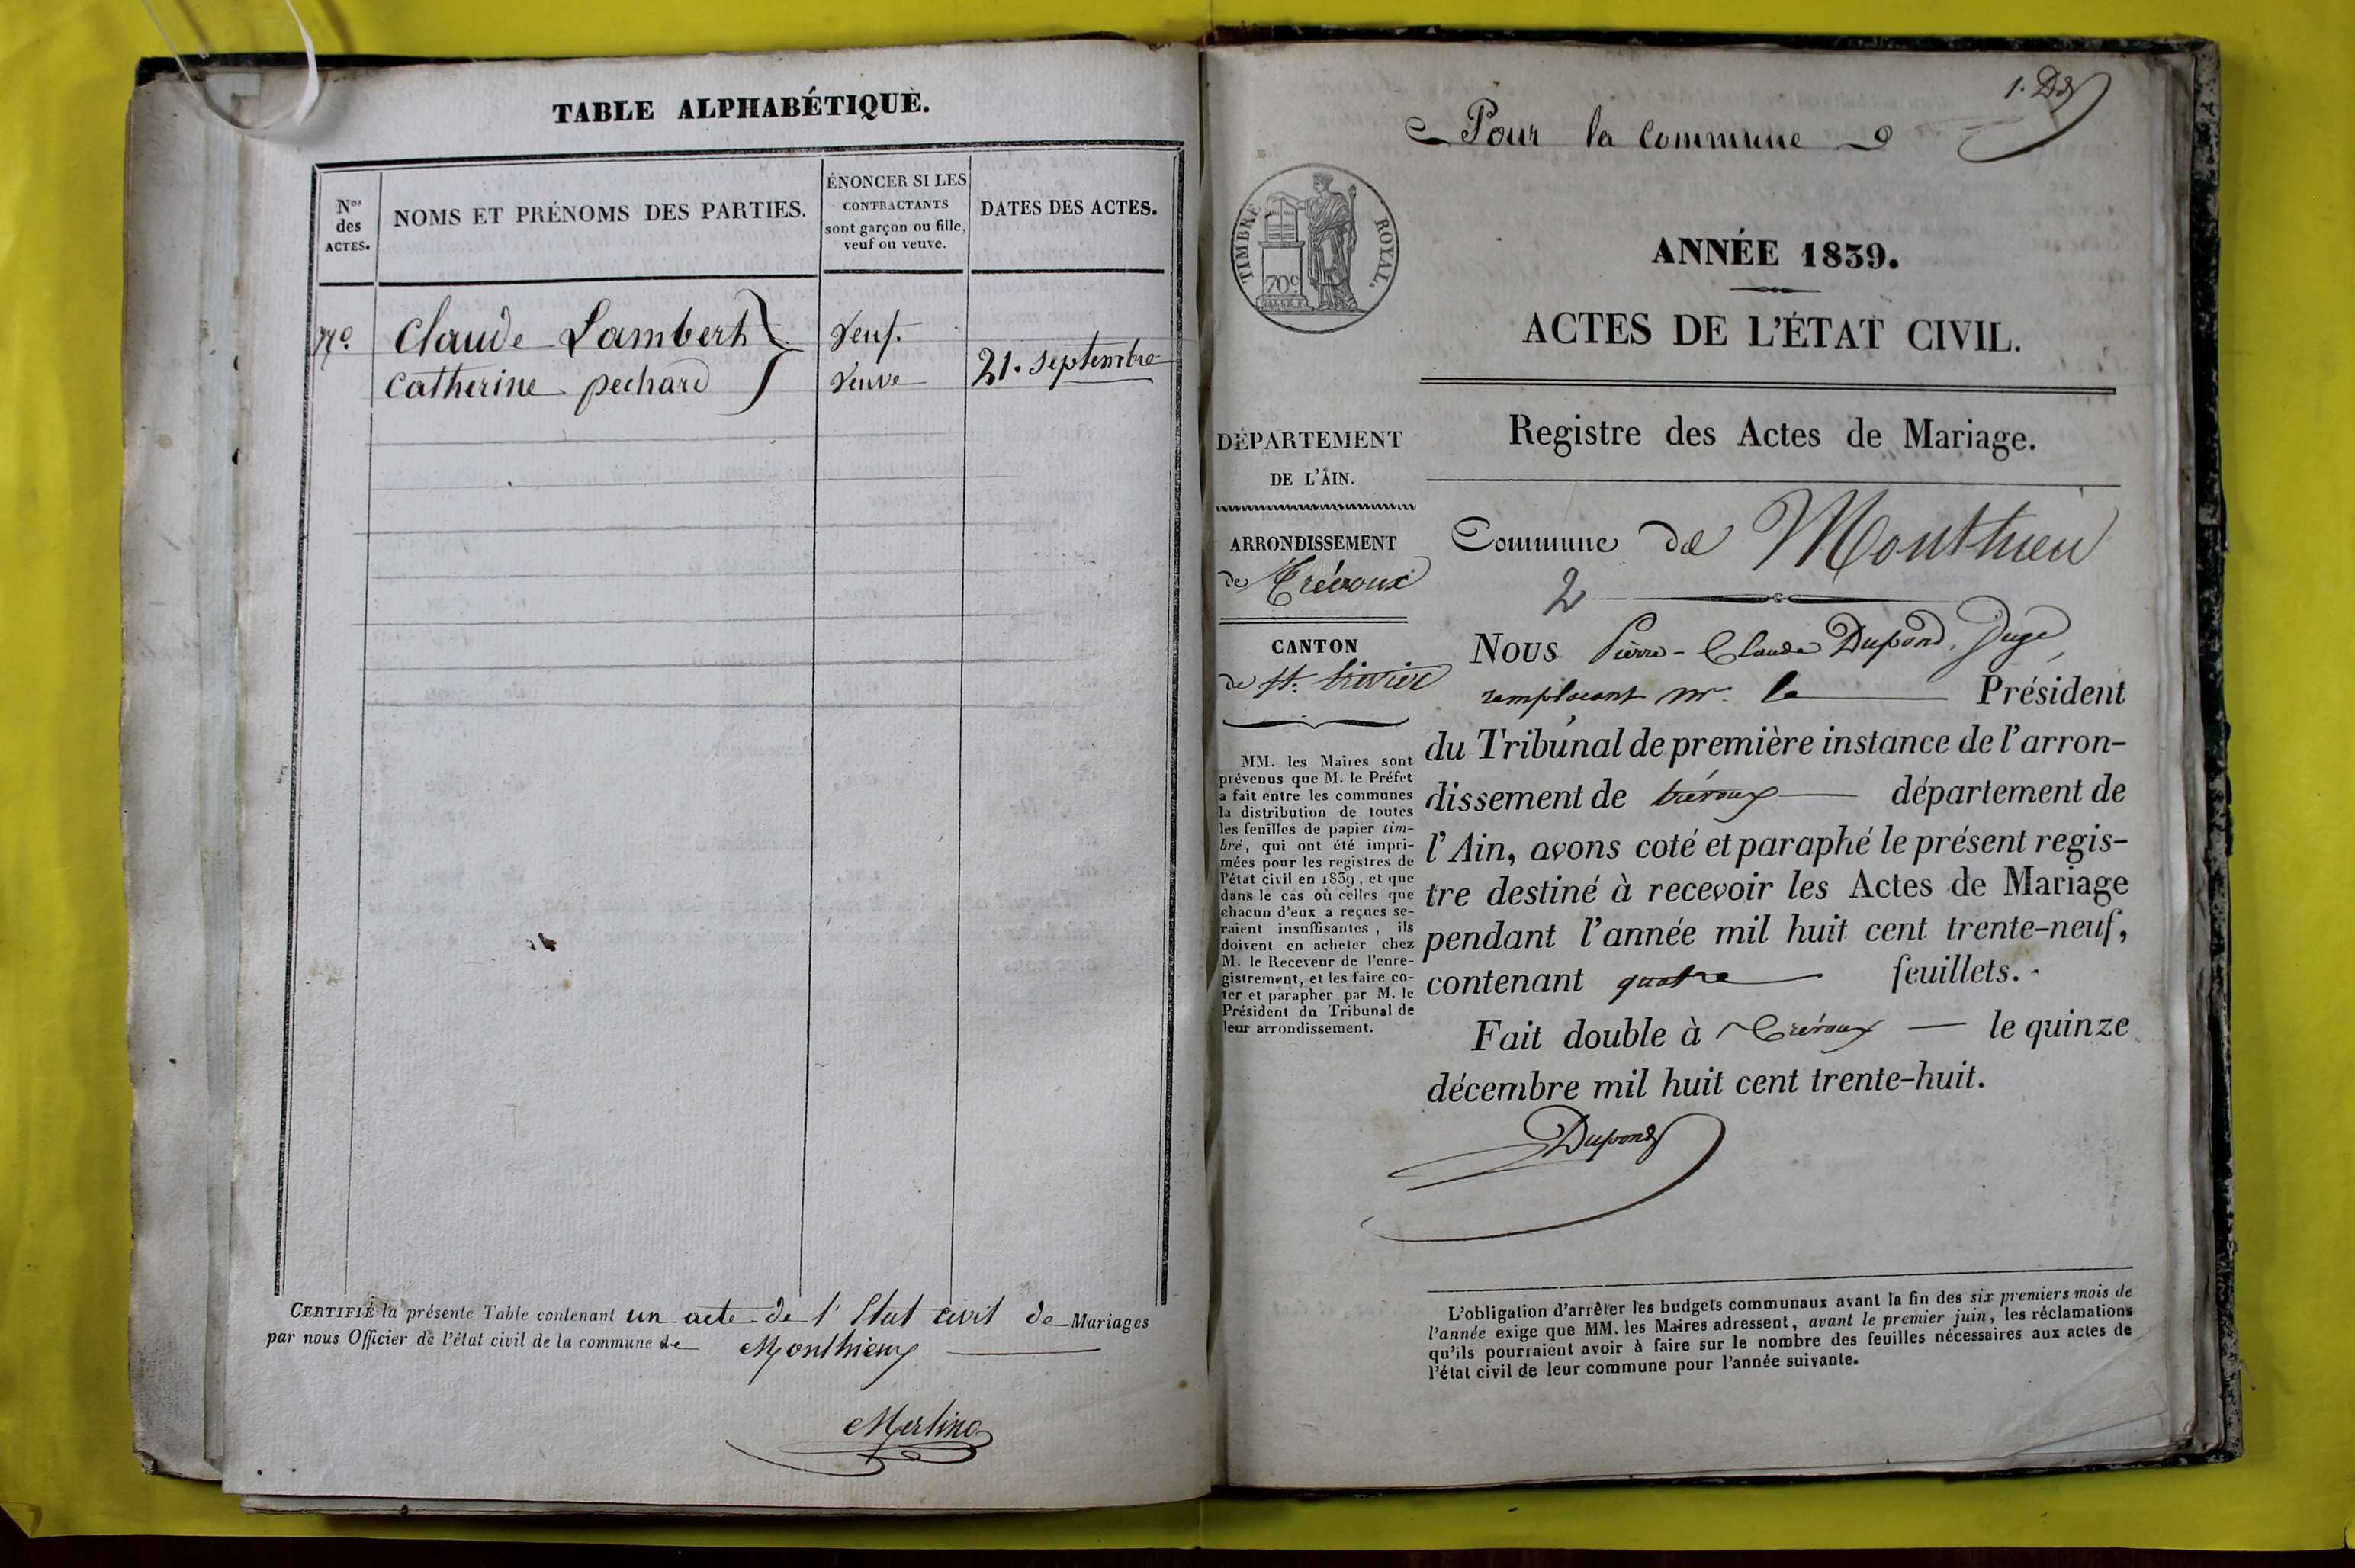 TABLE ALPHABÉTIQUE.
Nos des ACTES.
NOMS ET PRÉNOMS DES PARTIES.
ÉNONCER SI LES
CONTRACTANTS
sont garçon ou fille,
veuf ou veuve.
DATES DES ACTES.
Claude Lambert
Veuf.
Catherine pechard
Veuve
21. Septembre
CERTIFIÉ la présente Table contenant un acte de l'Etat civil de Mariages
par nous Officier de l'état civil de la commune de Monthieux
Merlino
1. D
Pour la commune
TIMBRE ROYAL.
70c
ANNÉE 1839.
ACTES DE L'ÉTAT CIVIL.
Registre des Actes de Mariage.
DÉPARTEMENT
DE L'AIN.
ARRONDISSEMENT
de Trévoux
CANTON
de St. trivier
MM. les Maires sont
prévenus que M. le Préfet
a fait entre les communes
la distribution de toutes
les feuilles de papier tim-
bré, qui ont été impri-
mées pour les registres de
l'état civil en 1839, et que
dans le cas où celles que
chacun d'eux a reçues se-
raient insuffisantes, ils
doivent en acheter chez
M. le Receveur de l'enre-
gistrement, et les faire co-
ter et parapher par M. le
Président du Tribunal de
leur arrondissement.
Commune de Monthieu
2
Nous Pierre-Claude Dupond, Juge,
remplacant Mr. le Président
du Tribunal de première instance de l'arron-
dissement de trévoux département de
l'Ain, avons coté et paraphé le présent regis-
tre destiné à recevoir les Actes de Mariage
pendant l'année mil huit cent trente-neuf,
contenant quatre feuillets.
Fait double à Trévoux le quinze
décembre mil huit cent trente-huit.
Dupond
L'obligation d'arrêter les budgets communaux avant la fin des six premiers mois de
l'année exige que MM. les Maires adressent, avant le premier juin, les réclamations
qu'ils pourraient avoir à faire sur le nombre des feuilles nécessaires aux actes de
l'état civil de leur commune pour l'année suivante.